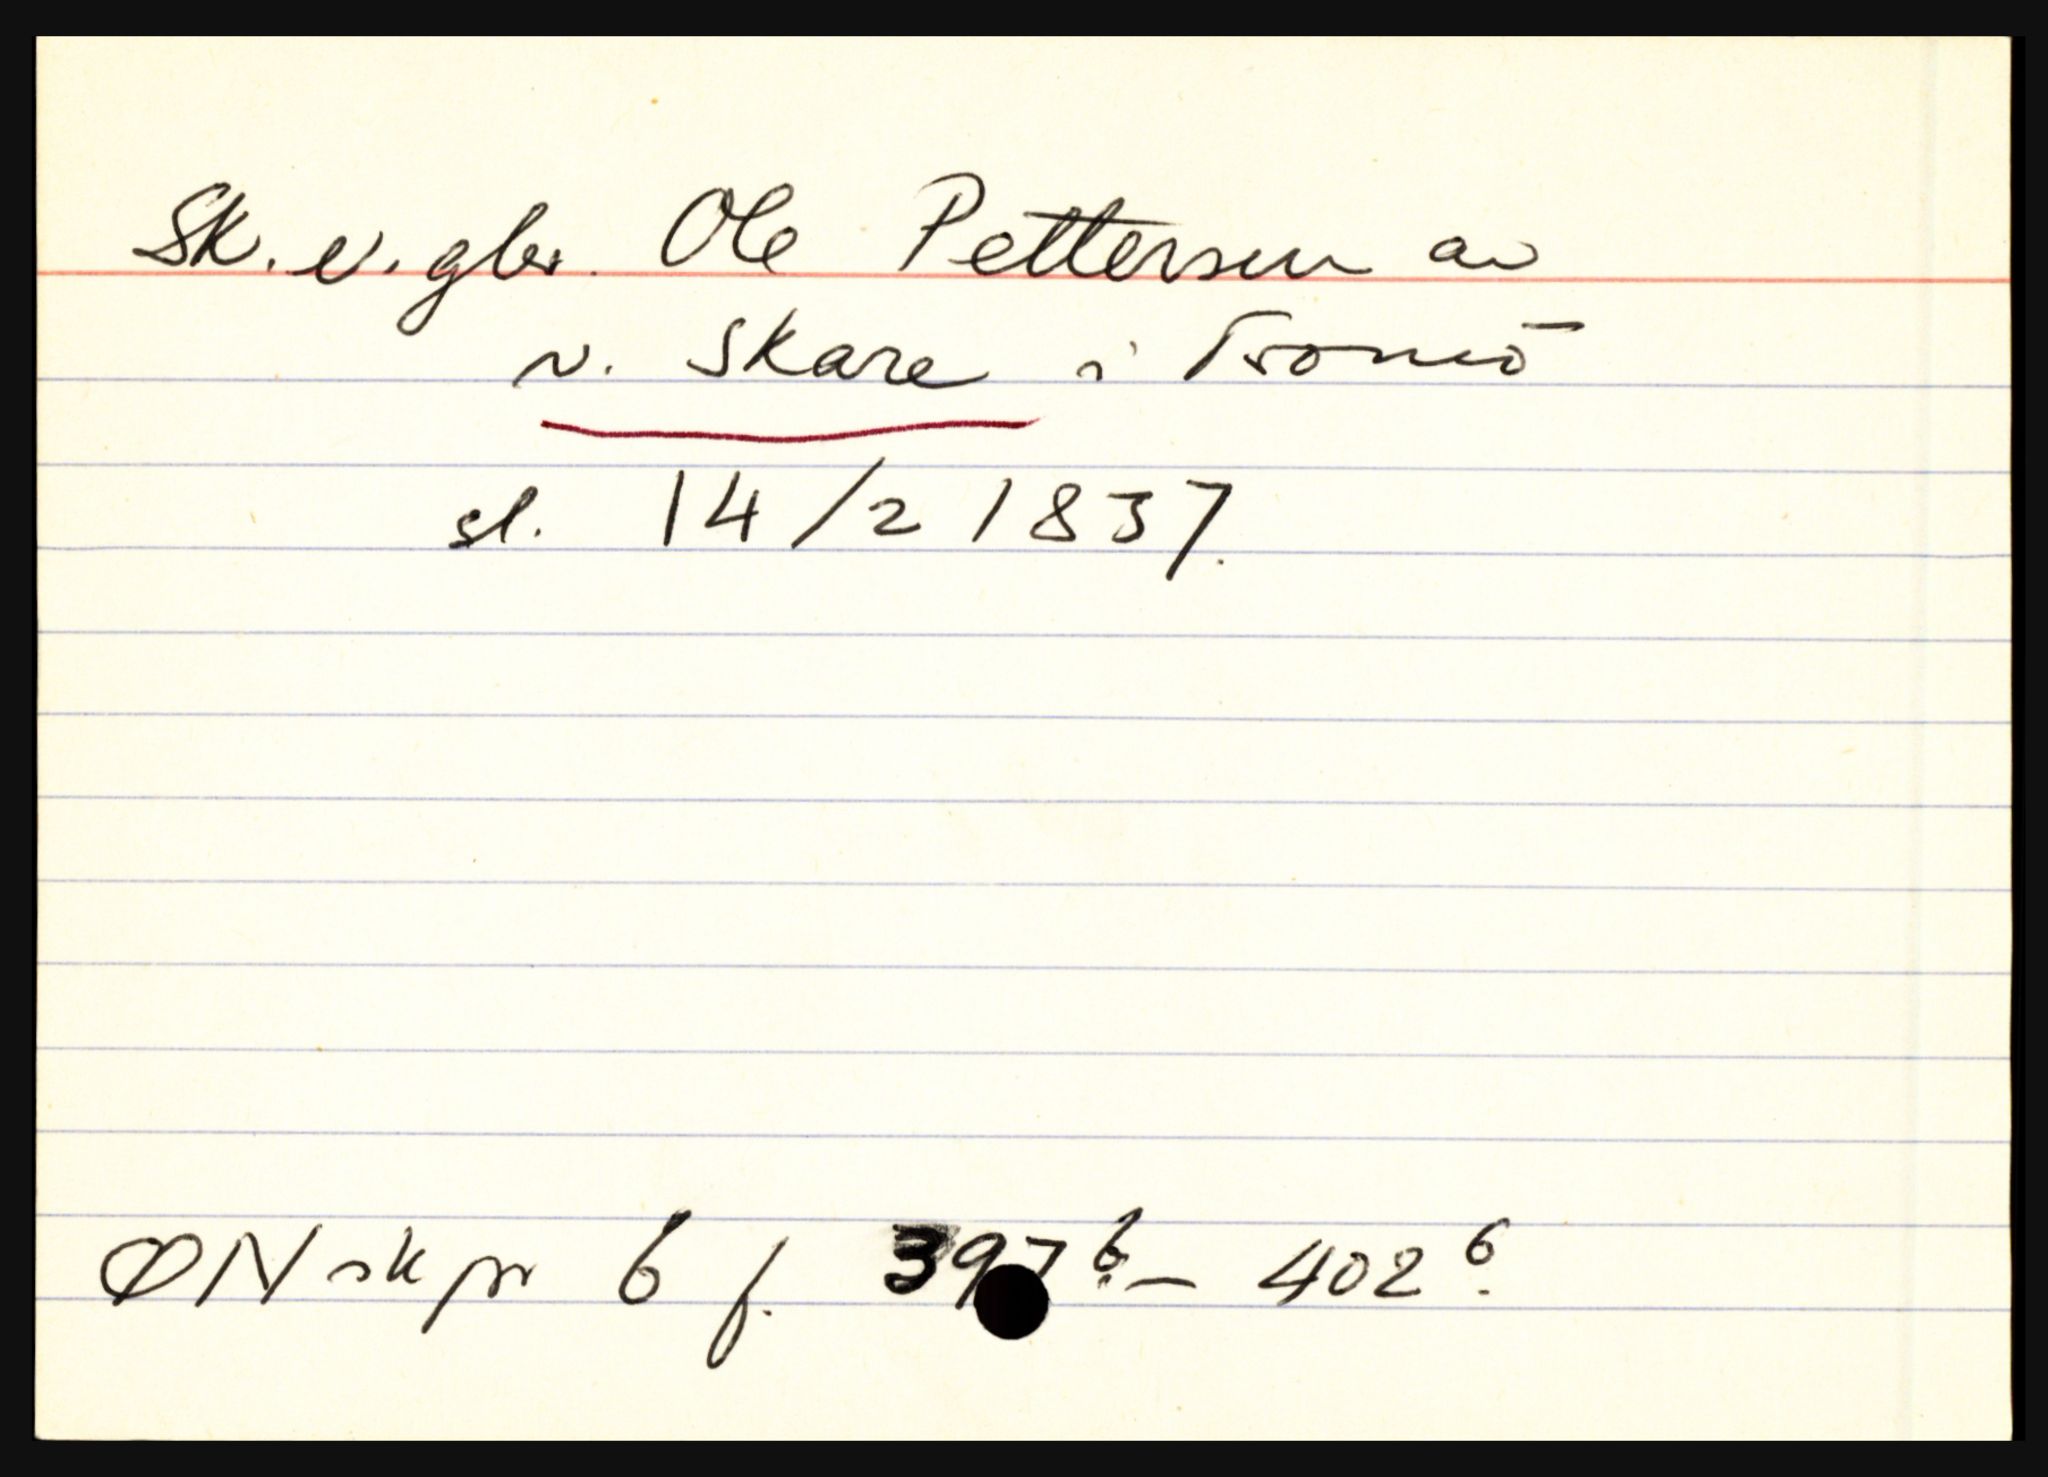 Sk. e. gbr. Ole Pettersen av
n. Skare i Tromö
sl. 14/2 1837.
ØN sk pr 6 f. 397 b. – 402 b.